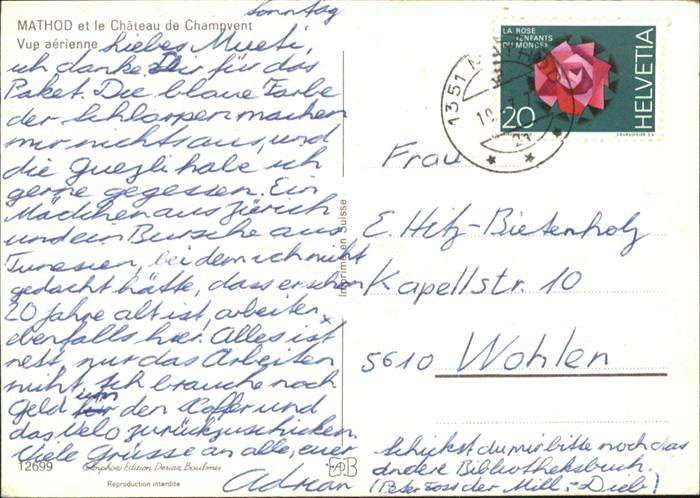 Sonntag
MATHOD et le Château de Champvent
Vue aérienne
Liebes Mueti,
ich danke Dir für das
Paket. Die blaue Farbe
der Schlarpen machen
mir nichts aus, und
die Guezli habe ich
gerne gegessen. Ein
Mädchen aus Zürich
und ein Bursche aus
Tunesien, bei dem ich nicht
gedacht hätte, dass er schon
20 Jahre alt ist, arbeiten
ebenfalls hier. Alles ist
nett, nur das Arbeiten
nicht. Ich brauche noch
Geld um den Koffer und
das Velo zurückzuschicken.
Viele Grüsse an alle, euer
Adrian
12699
Reproduction interdite
Imprimé en Suisse
LA ROSE
"ENFANTS
DU MONDE"
HELVETIA
20
COURVOISIER S.A.
1351
Frau
E. Hitz-Bietenholz
Kapellstr. 10
5610 Wohlen
Schickst du mir bitte noch das
andere Bibliotheksbuch.